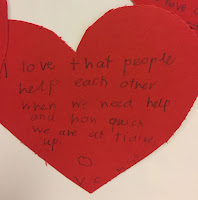 I love that people
help each other
when we need help
and how quick
we are at tidying
up.